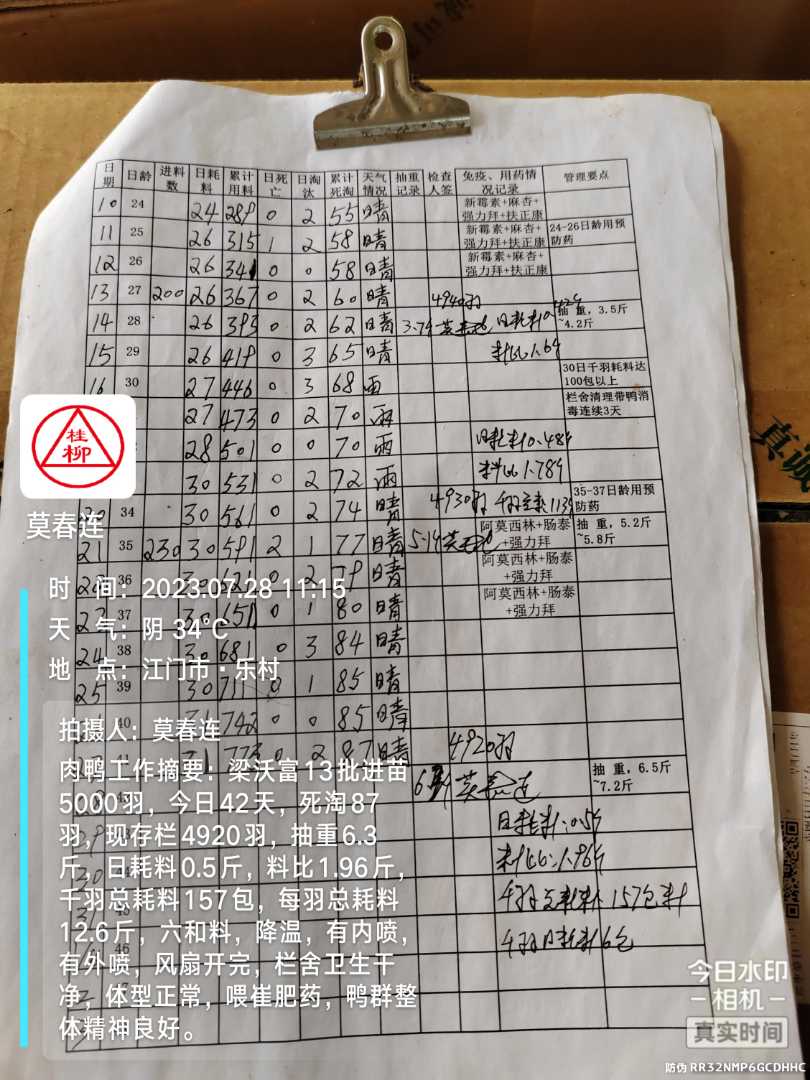 日期 日龄 进料数 日耗料 累计用料 日死亡 日淘汰 累计死淘 天气情况 抽重记录 检查人签 免疫、用药情况记录 管理要点
10 24 24 289 0 2 55 晴 新霉素+麻杏+强力拜+扶正康
11 25 26 315 1 2 58 晴 新霉素+麻杏+强力拜+扶正康 24-26日龄用预防药
12 26 26 341 0 0 58 晴 新霉素+麻杏+强力拜+扶正康
13 27 200 26 367 0 2 60 晴 4940羽
14 28 26 393 0 2 62 晴 3.7斤 莫春连 日耗料0.42斤 抽重,3.5斤~4.2斤
15 29 26 419 0 3 65 晴 料比1.6斤
16 30 27 446 0 3 68 雨 30日千羽耗料达100包以上
27 473 0 2 70 雨 栏舍清理带鸭消毒连续3天
28 501 0 0 70 雨 日耗料0.48斤
30 531 0 2 72 雨 料比1.78斤
20 34 30 561 0 2 74 晴 4930羽 千羽总耗113包 35-37日龄用预防药
21 35 230 30 591 2 1 77 晴 5.1斤 莫春连 阿莫西林+肠泰+强力拜 抽重,5.2斤~5.8斤
22 36 30 621 0 2 79 晴 阿莫西林+肠泰+强力拜
23 37 30 651 0 1 80 晴 阿莫西林+肠泰+强力拜
24 38 30 681 0 3 84 晴
25 39 30 711 0 1 85 晴
40 31 742 0 0 85 晴
41 31 773 0 2 87 晴 4920羽
莫春连 抽重,6.5斤~7.2斤
日耗料:0.5斤
料比:1.96斤
千羽总耗料157包料
46 千羽日耗料6包
桂柳
莫春连
时 间:2023.07.28 11:15
天 气:阴 34℃
地 点:江门市·乐村
拍摄人:莫春连
肉鸭工作摘要:梁沃富13批进苗
5000羽,今日42天,死淘87
羽,现存栏4920羽,抽重6.3
斤,日耗料0.5斤,料比1.96斤,
千羽总耗料157包,每羽总耗料
12.6斤,六和料,降温,有内喷,
有外喷,风扇开完,栏舍卫生干
净,体型正常,喂崔肥药,鸭群整
体精神良好。
真诚
今日水印
相机
真实时间
防伪 RR32NMP6GCDHHC